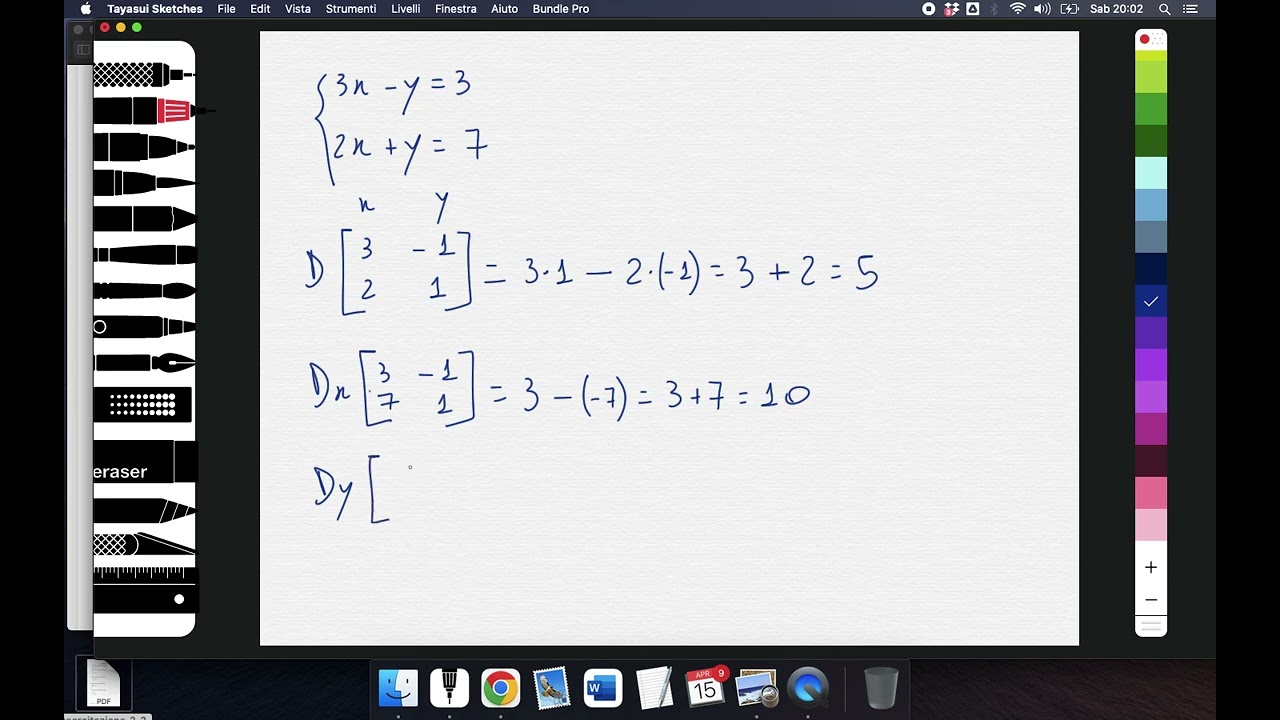 Tayasui Sketches File Edit Vista Strumenti Livelli Finestra Aiuto Bundle Pro Sab 20:02
3x - y = 3
2x + y = 7
x y
D [ 3 - 1
2 1 ] = 3·1 - 2·(-1) = 3 + 2 = 5
Dx [ 3 - 1
7 1 ] = 3 - (-7) = 3+7 = 10
eraser
Dy [
+
-
PDF
W
APR 9
15